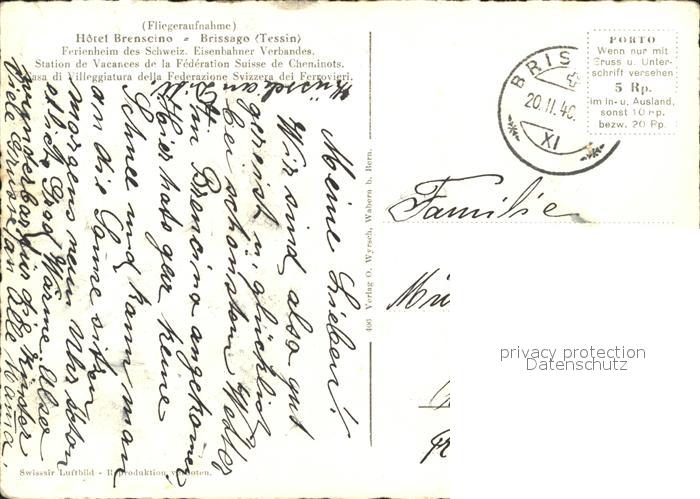 (Fliegeraufnahme)
Hôtel Brenscino - Brissago (Tessin)
Ferienheim des Schweiz. Eisenbahner Verbandes.
Station de Vacances de la Fédération Suisse de Cheminots.
Casa di Villeggiatura della Federazione Svizzera dei Ferrovieri.
Meine Lieben!
Wir sind also gut
gereist u. glücklich
bei schönstem Wetter
im Brenscino angekommen
Hier hats gar keine
Schnee und kann man
an die Sonne sitzen
morgens
etliche Grad Wärme. Also
wunderbar für die Kinder
Viele
406 Verlag O. Wyrsch, Wabern b. Bern.
Swissair Luftbild - Reproduktion verboten.
BRIS
20.II.46.
XI
PORTO
Wenn nur mit
Gruss u. Unter-
schrift versehen
5 Rp.
im In- u. Ausland,
sonst 10 Rp.
bezw. 20 Rp.
Familie
privacy protection
Datenschutz